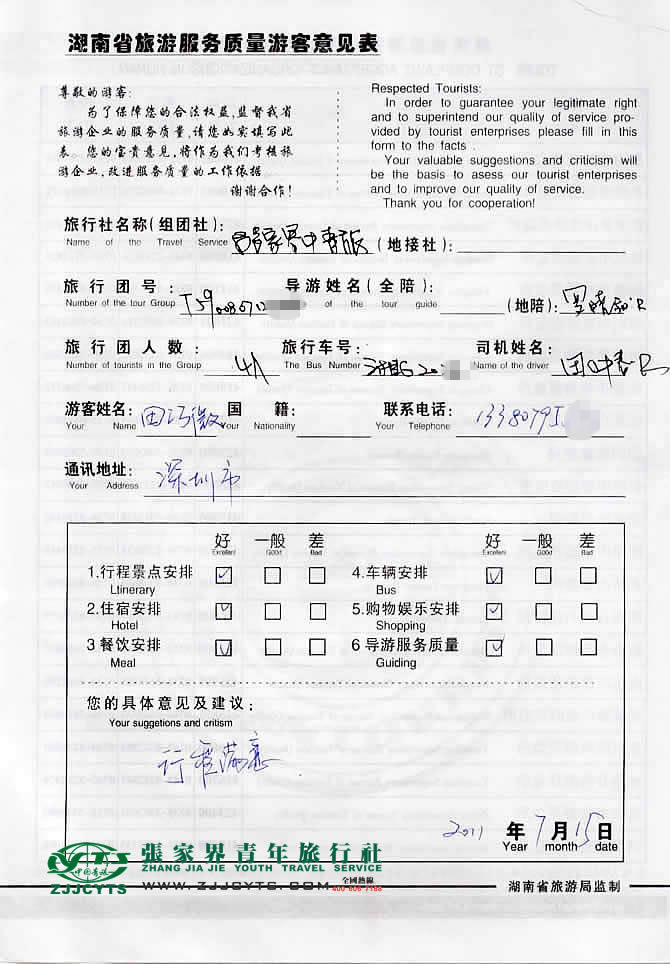 湖南省旅游服务质量游客意见表
尊敬的游客:
为了保障您的合法权益,监督我省
旅游企业的服务质量,请您如实填写此
表。您的宝贵意见,将作为我们考核旅
游企业,改进服务质量的工作依据。
谢谢合作!
Respected Tourists:
In order to guarantee your legitimate right
and to superintend our quality of service pro-
vided by tourist enterprises please fill in this
form to the facts .
Your valuable suggestions and criticism will
be the basis to asess our tourist enterprises
and to improve our quality of service.
Thank you for cooperation!
旅行社名称(组团社): (地接社):
Name of the Travel Service
旅行团号: 导游姓名(全陪): (地陪):
Number of the tour Group of the tour guide
旅行团人数: 4人 旅行车号: 司机姓名:
Number of tourists in the Group The Bus Number Name of the driver
游客姓名: 国籍: 联系电话: 1338079
Your Name Your Nationality Your Telephone
通讯地址: 深圳市
Your Address
好 一般 差 好 一般 差
Excellent Good Bad Excellent Good Bad
1.行程景点安排 4.车辆安排
Ltinerary Bus
2.住宿安排 5.购物娱乐安排
Hotel Shopping
3 餐饮安排 6 导游服务质量
Meal Guiding
您的具体意见及建议:
Your suggetions and critism
2011 年 7 月 15 日
Year month date
張家界青年旅行社
ZHANG JIA JIE YOUTH TRAVEL SERVICE
中国青旅
ZJJCYTS
WWW.ZJJCYTS.COM 全國熱線
湖南省旅游局监制